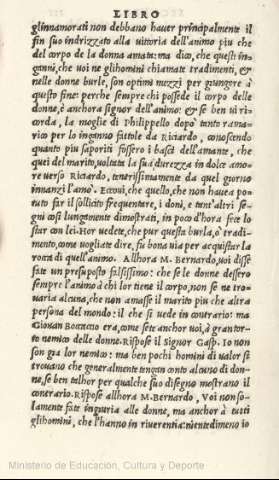 LIBRO
glinnamorati non debbano haver principalmente il
fin suo indrizzato alla uittoria dell'animo piu che
del corpo de la donna amata: ma dico, che questi in-
ganni, che voi ne glihomini chiamate tradimenti, &
nelle donne burle, son optimi mezzi per giungere à
questo fine: perche sempre chi possede il corpo delle
donne, è anchora signor dell'animo: & se ben ui ri-
corda, la moglie di Philippello dopò tanto ramà-
rico per lo inganno fattole da Riciardo, conoscendo
quanto piu saporiti fossero i basci dell'amante, che
quei del marito, uoltata la sua durezza in dolce amo-
re uerso Riciardo, tenerissimamente da quel giorno
innanzi l'amò. Eccoui, che quello, che non hauea po-
tuto far il sollicito frequentare, i doni, e tant'altri se-
gni così lungamente dimostrati, in poco d'hora fece lo
star con lei. Hor uedete, che pur questa burla, ò tradi-
mento, come uogliate dire, fu bona uia per acquistar la
rocca di quell'animo. Allhora M. Bernardo, uoi disse
fate un presuposto falsissimo: che se le donne dessero
sempre l'animo à chi lor tiene il corpo, non se ne tro-
uaria alcuna, che non amasse il marito piu che altra
persona del mondo: il che si uede in contrario: ma
Giovan Boccaccio era, come sete anchor uoi, à gran tor-
to nemico delle donne. Rispose il Signor Gasp. Io non
son gia lor nemico: ma ben pochi homini di ualor si
trouano che generalmente tengan conto alcuno di don-
ne, se ben talhor per qualche suo disegno mostrano il
contrario. Rispose allhora M. Bernardo, Voi non so-
lamente fate ingiuria alle donne, ma anchor à tutti
glihomini, che l'hanno in riuerentia: nientedimeno io
Ministerio de Educación, Cultura y Deporte